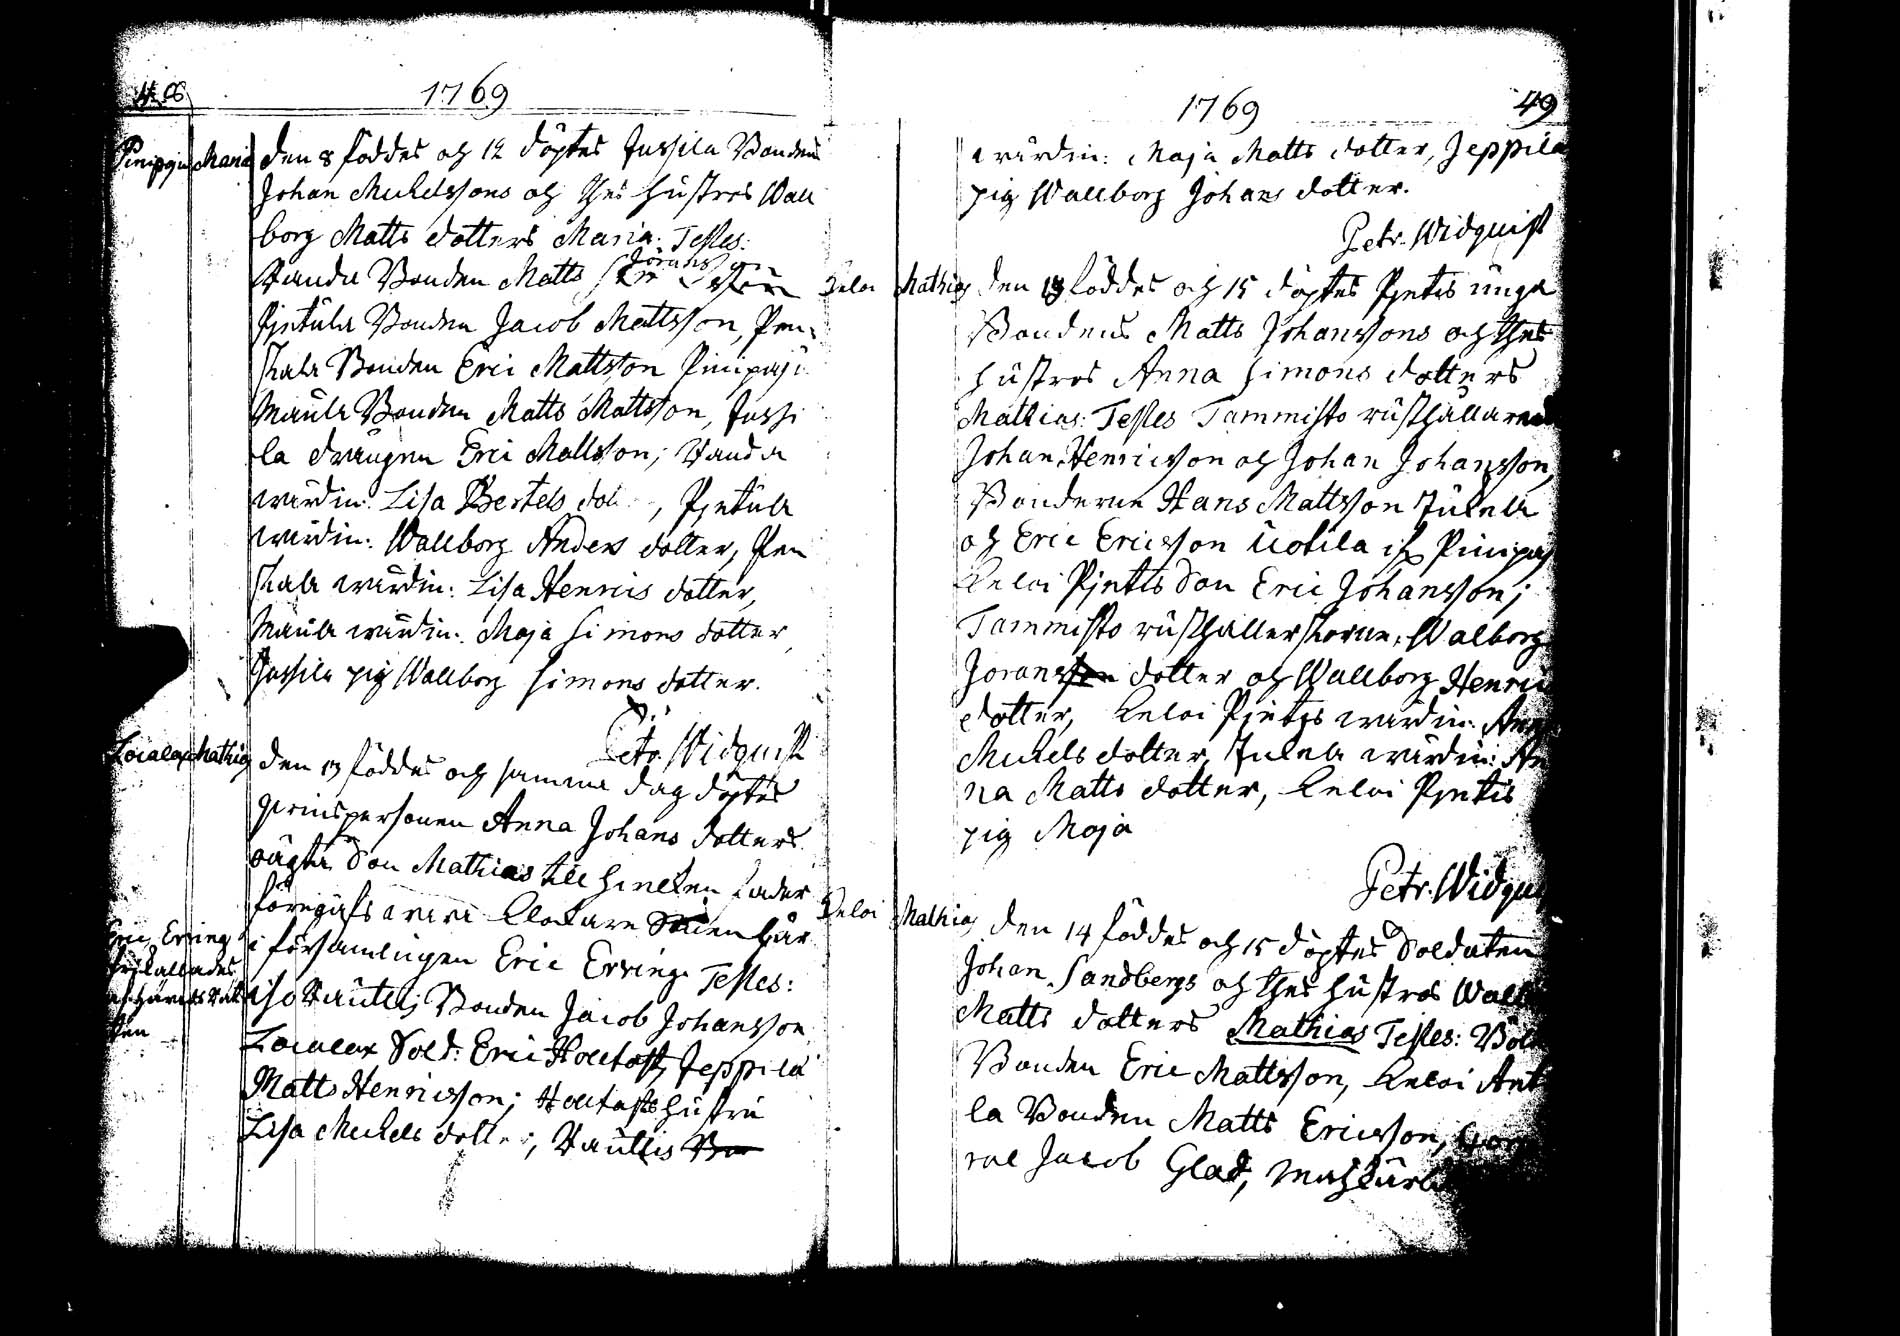 48
1769
Pinipaju Maria den 8 föddes och 12 döptes Jussila Bondens
Johan Michelssons och thes hustros Wall
borg Matts dotters Maria: Testes:
Handu Bonden Matts Jöransson
Pjetula Bonden Jacob Mattsson, Pen
skala Bonden Eric Mattsson Pinipaju
Maula Bonden Matts Mattsson, Jussi
la drängen Eric Mattsson; Handu
wärdin: Lisa Bertels dott, Pjetula
wärdin: Wallborg Anders dotter, Pen
skala wärdin: Lisa Henrics dotter,
Maula wärdin: Maja Simons dotter,
Jussila pig Wallborg Simons dotter.
Petr. Widquist
Localax Mathias den 13 föddes och samma dag döptes
qvinspersonen Anna Johans dotters
oägta Son Mathias till hvilken fader
föregifs wara Klockare Sonen här
i församlingen Eric Erving. Testes:
Hautila Bonden Jacob Johansson
Localax Sold: Eric Holtast, Jeppila
Matts Henricsson; Holtasts hustru
Lisa Michels dotter; Hautlis
Eric Erving
frikallades
af Härads Rät
ten
1769
49
wärdin: Maja Matts dotter, Jeppila
pig Wallborg Johans dotter.
Petr. Widquist
Keloi Mathias den 13 föddes och 15 döptes Pjetis unga
Bondens Matts Johanssons och thes
hustros Anna Simons dotters
Mathias: Testes Tammisto rusthållarena
Johan Henricsson och Johan Johansson,
Bonderne Hans Mattsson Jukela
och Eric Ericsson Uotila i Pinipaj
Keloi Pjetis Son Eric Johansson;
Tammisto rusthållerskorne, Walborg
Jorans dotter och Wallborg Henrics
dotter, Keloi Pjetis wärdin: Anna
Michels dotter, Jukela wärdin: An
na Matts dotter, Keloi Pjetis
pig Maja
Petr. Widqu
Keloi Mathias den 14 föddes och 15 döptes Soldaten
Johan Sandbergs och thes hustros Wallb
Matts dotters Mathias Testes:
Bonden Eric Mattsson, Keloi Ant
la Bonden Matts Ericsson, Corp
ral Jacob Glad,